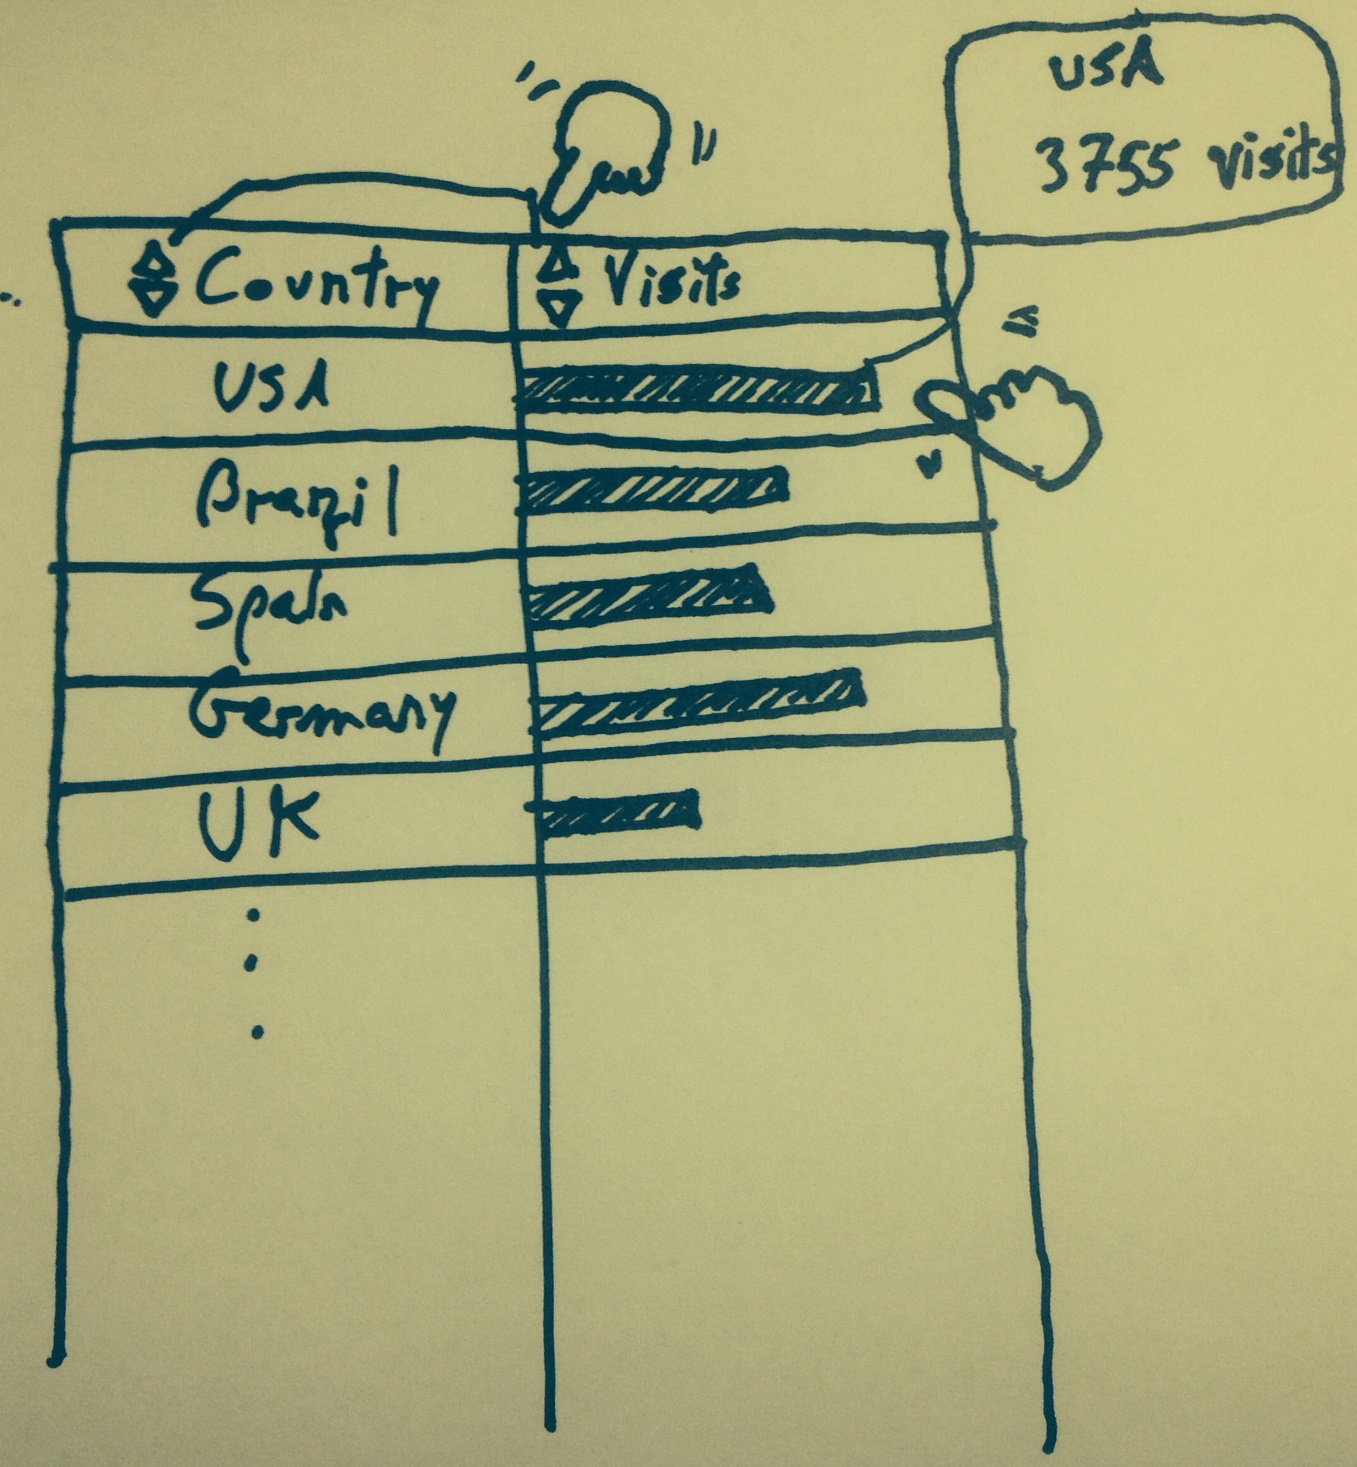 USA
3755 visits
Country Visits
USA
Brazil
Spain
Germany
UK